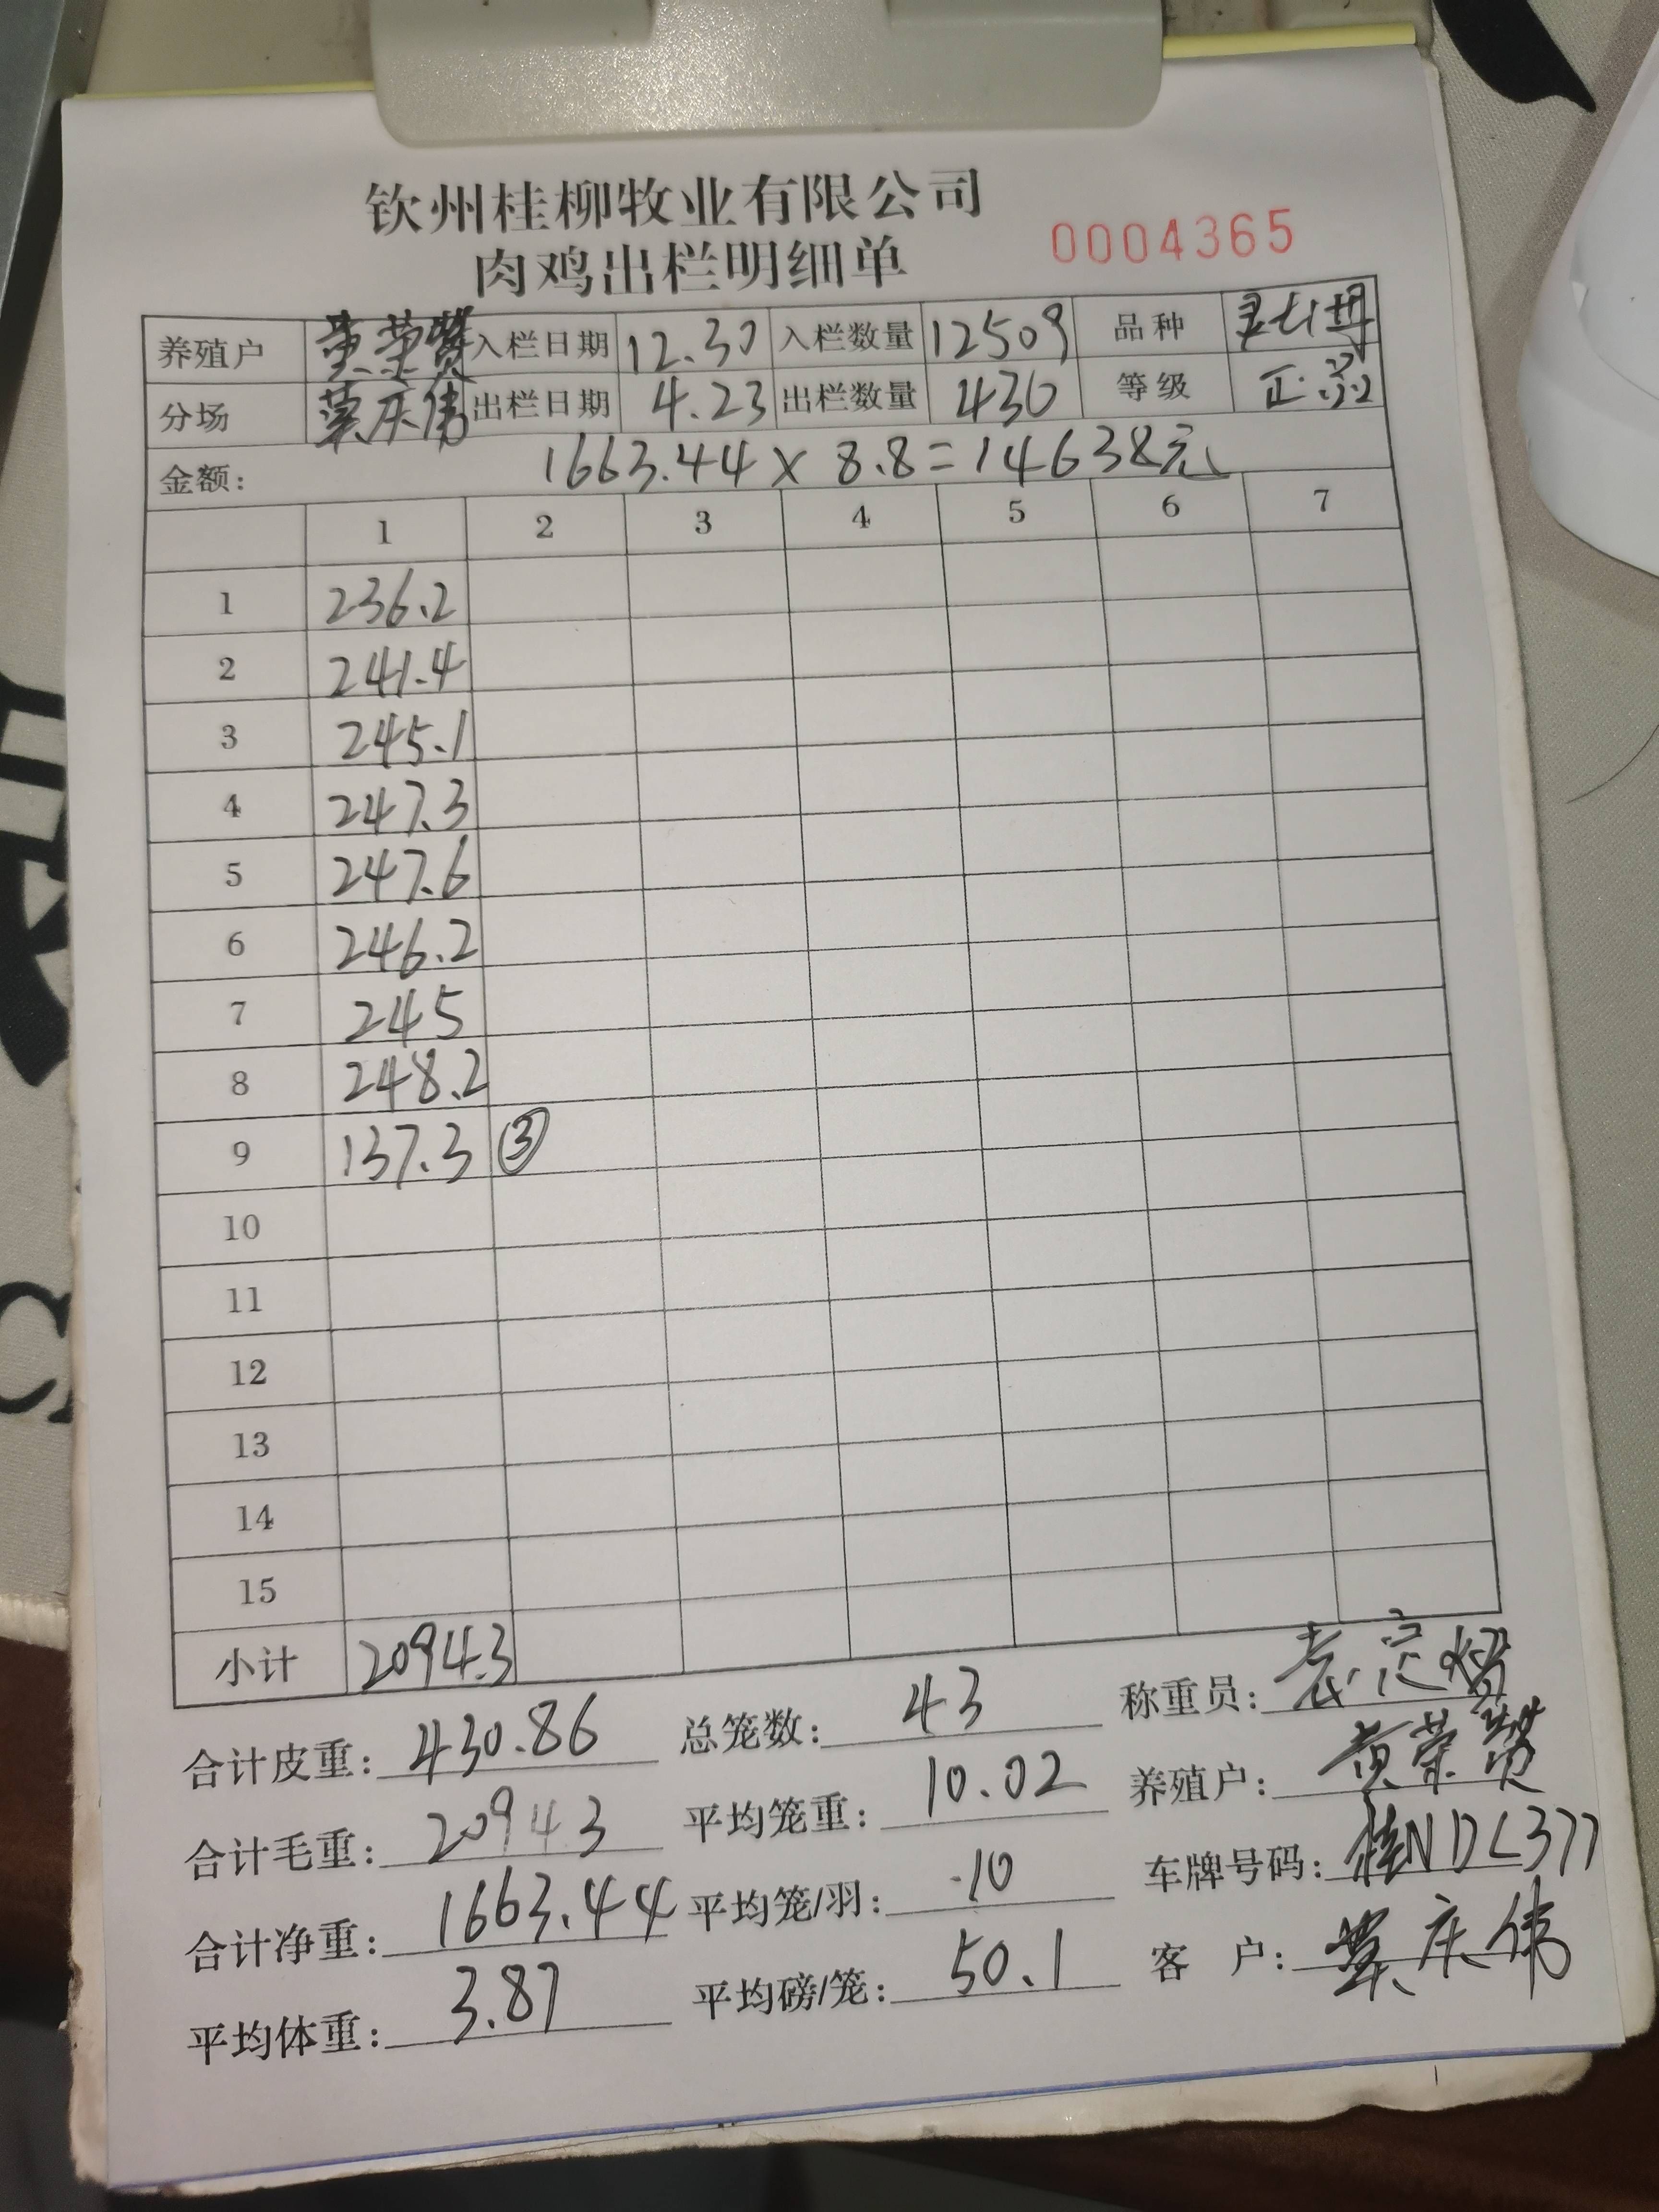 钦州桂柳牧业有限公司
肉鸡出栏明细单 0004365
养殖户 黄荣赞 入栏日期 12.30 入栏数量 12509 品种
分场 覃庆伟 出栏日期 4.23 出栏数量 430 等级 正品
金额: 1663.44 x 8.8=14638元
1 2 3 4 5 6 7
1 236.2
2 241.4
3 245.1
4 247.3
5 247.6
6 246.2
7 245
8 248.2
9 137.3 ③
10
11
12
13
14
15
小计 2094.3
合计皮重: 430.86 总笼数: 43 称重员:
合计毛重: 2094.3 平均笼重: 10.02 养殖户: 黄荣赞
合计净重: 1663.44 平均笼/羽: 10 车牌号码: 桂NDL377
平均体重: 3.87 平均磅/笼: 50.1 客 户: 覃庆伟